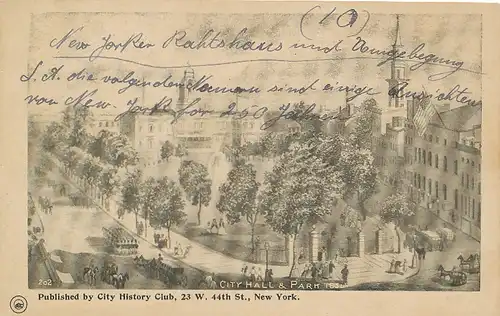 (10)
New Jorker Rahtshaus und Vomgebegung
S. A. die volgenden Namern sind einige Ansichten
von New-Jork for 250 Jahren!
CITY HALL & PARK
202
Published by City History Club, 23 W. 44th St., New York.